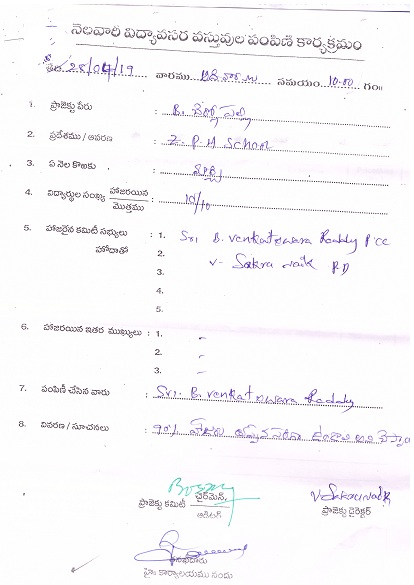 నెలవారీ విద్యావసర వస్తువుల పంపిణి కార్యక్రమం
తేది 28/04/19 వారము ఆదివారము సమయం 10.00 గం॥
1. ప్రాజెక్టు పేరు :
2. ప్రదేశము / ఆవరణ : Z. P. H School
3. ఏ నెల కొఱకు : మార్చి
4. విద్యార్థుల సంఖ్య హాజరయిన / మొత్తము : 10/10
5. హాజరైన కమిటీ సభ్యులు హోదాతో : 1. Sri B. Venkateswara Reddy PCC
2. V. Sakru Naik PD
3.
4.
5.
6. హాజరయిన ఇతర ముఖ్యులు : 1.
2.
3.
7. పంపిణీ చేసిన వారు : Sri. B. Venkateswara Reddy
8. వివరణ / సూచనలు : 90%
ప్రాజెక్టు కమిటీ చైర్‌మెన్,
ఆడిటర్
V Sakru Naik
ప్రాజెక్టు డైరెక్టర్
హై॥ కార్యాలయము నందు